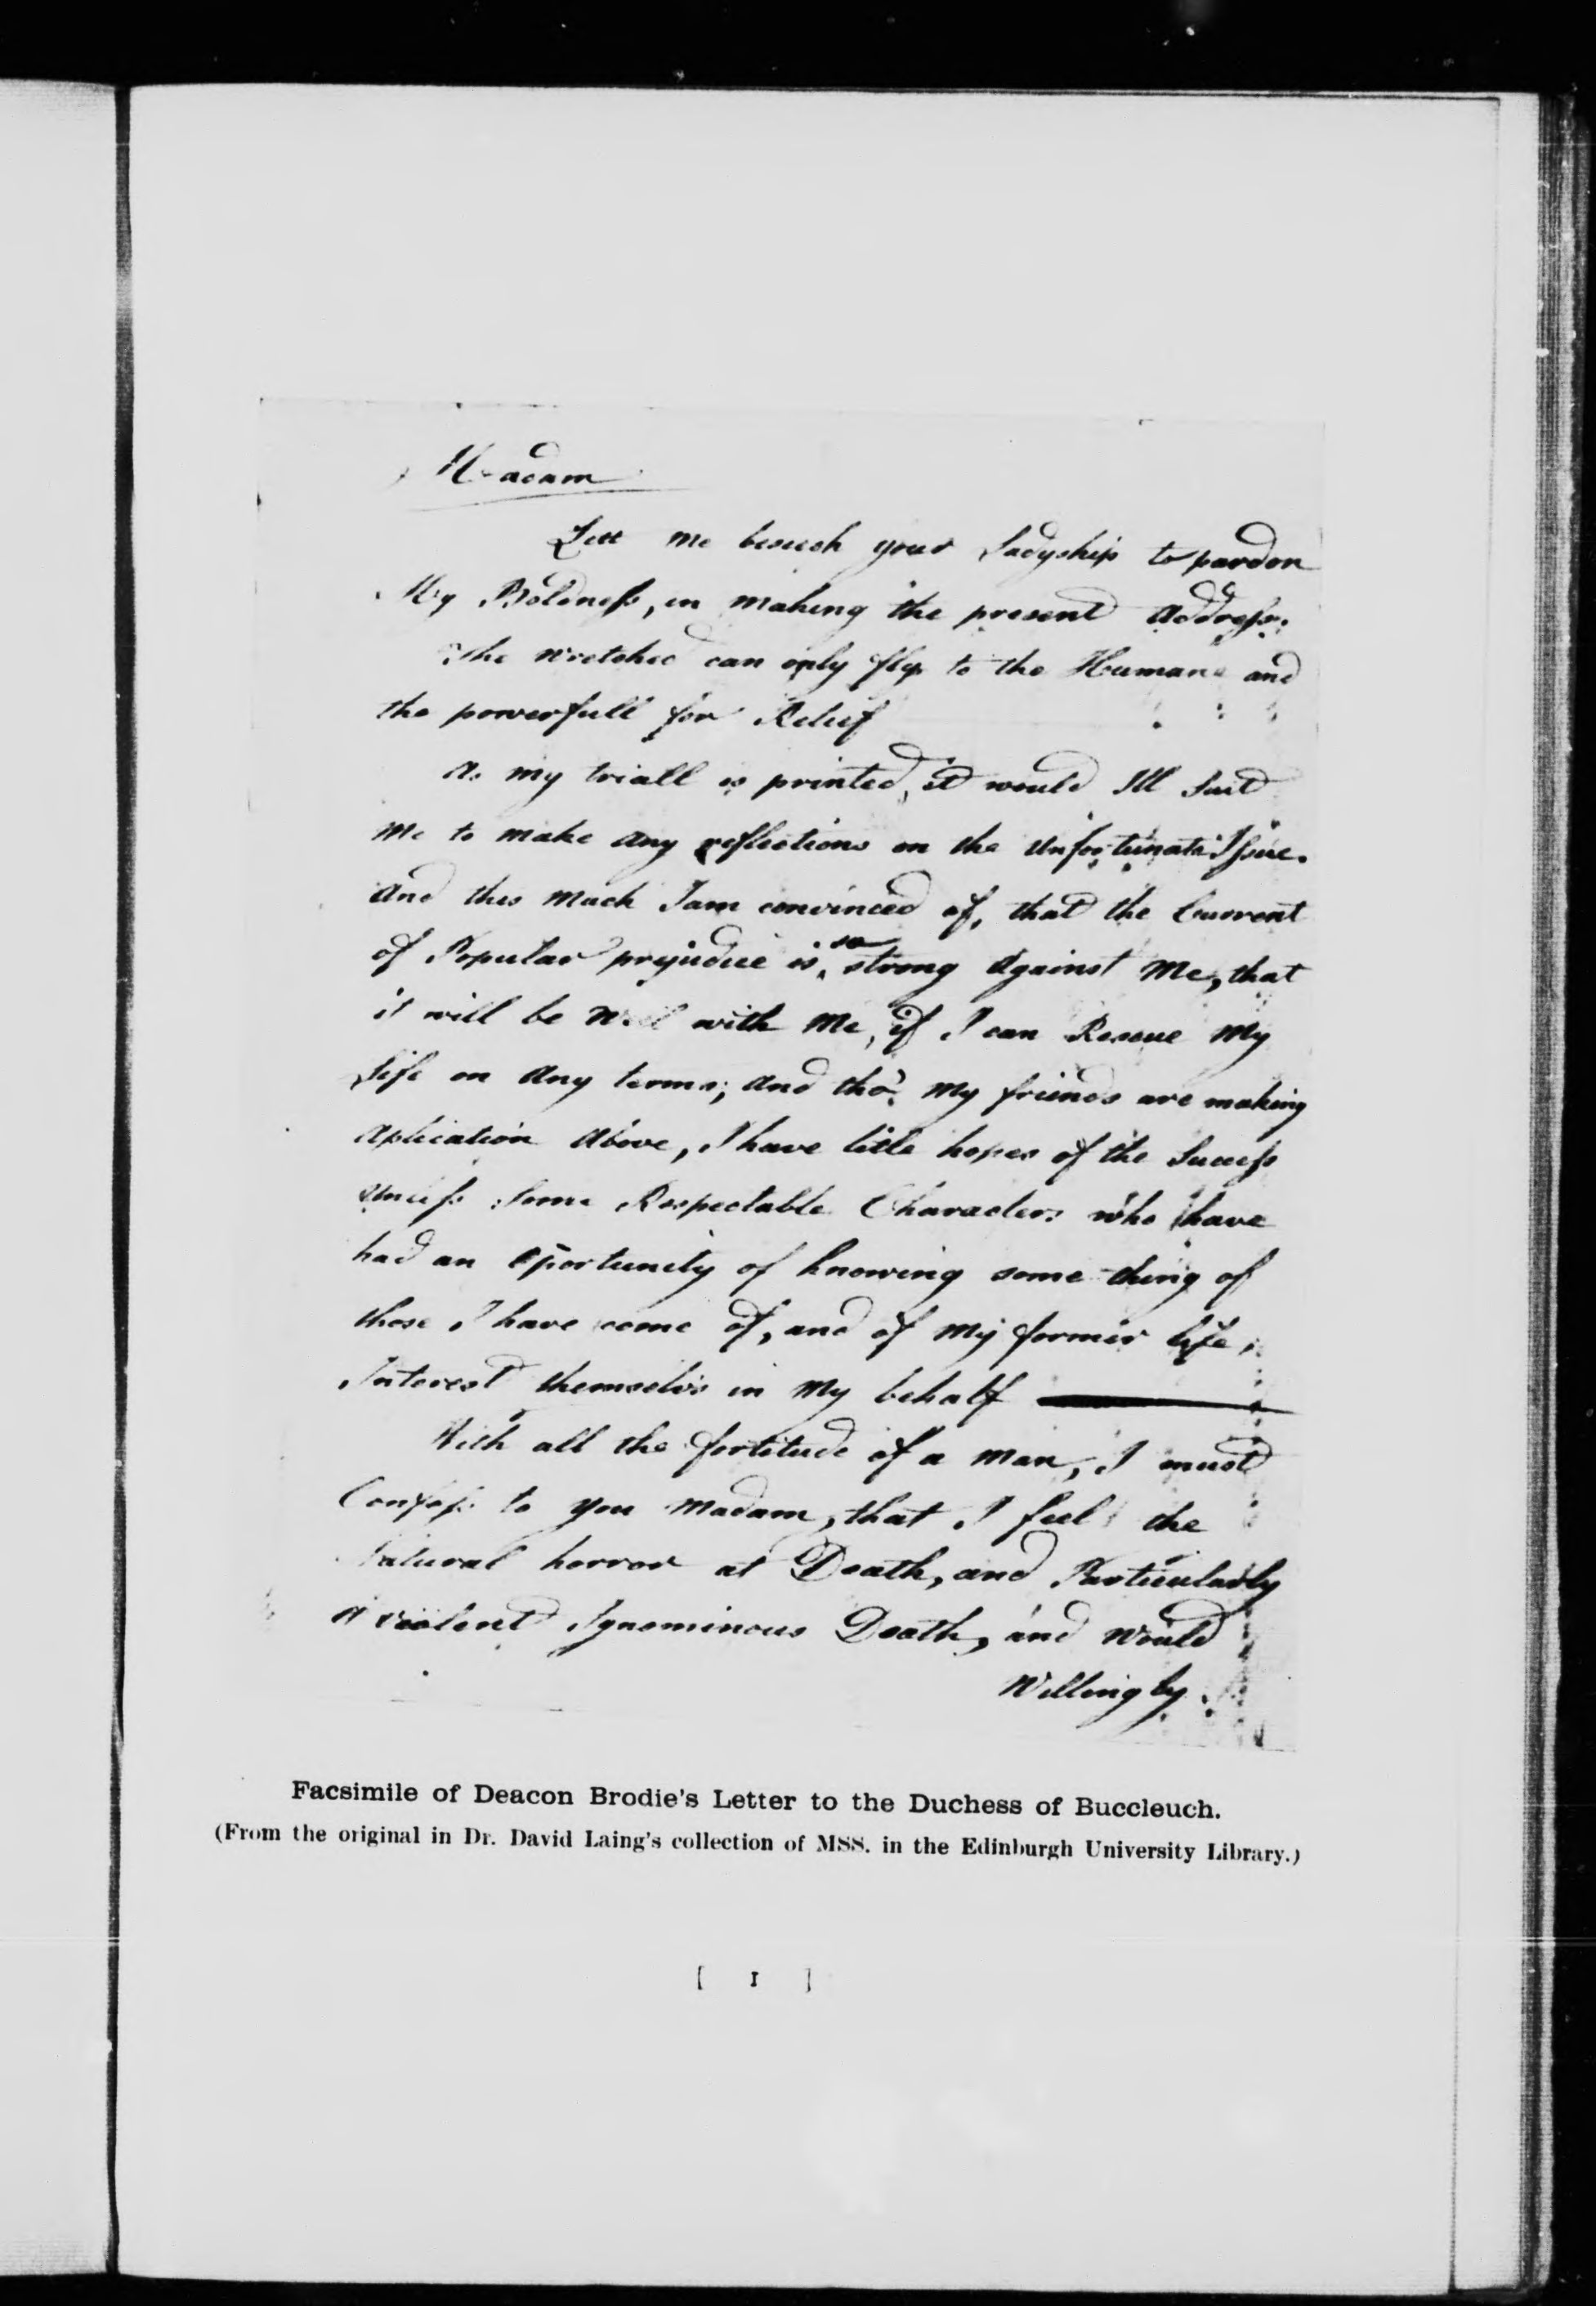 Madam
Lett me beseech your Ladyship to pardon
My Boldness, in making the present address.
The wretched can only fly to the Humane and
the powerfull for Relief
As my triall is printed, it would Ill Suit
me to make any reflections on the unfortunate Issue.
And this much I am convinced of, that the Current
of Popular prejudice is so strong against Me, that
it will be well with Me, if I can Rescue My
Life on any terms; and tho' My friends are making
aplication above, I have litle hopes of the Success
unless Some Respectable Characters who have
had an oportunity of knowing some thing of
those I have come of, and of my former life,
Interest themselvs in My behalf
With all the fortitude of a man, I must
Confess to you Madam, that I feel the
Natural horror at Death, and Particularly
a violent Ignominous Death, and would
Willingly
Facsimile of Deacon Brodie's Letter to the Duchess of Buccleuch.
(From the original in Dr. David Laing's collection of MSS. in the Edinburgh University Library.)
[ 1 ]